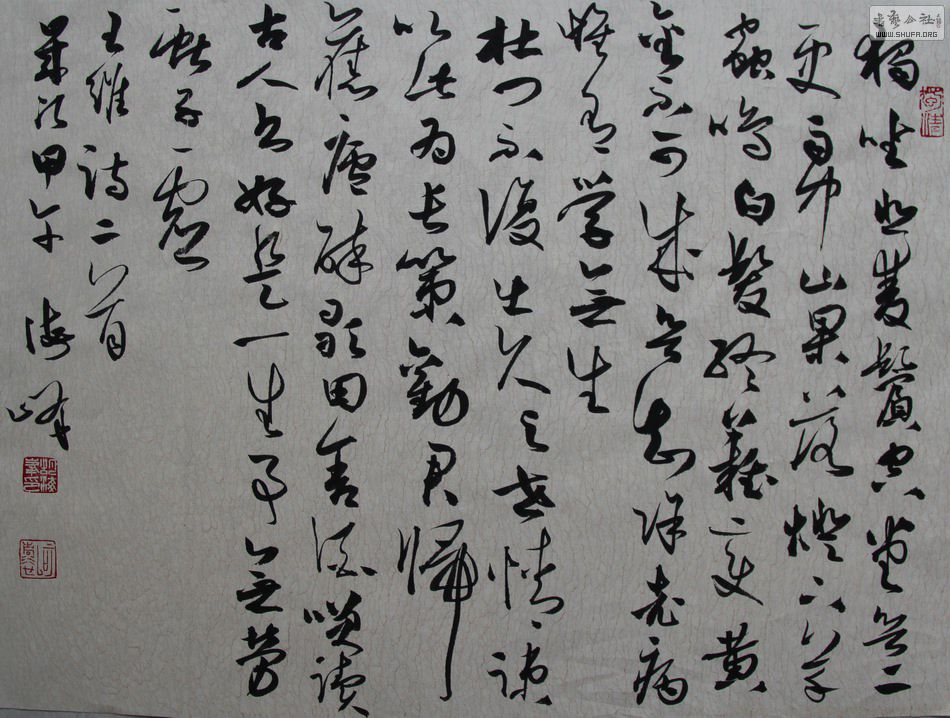 獨坐悲雙鬢空堂欲二
更雨中山果落燈下草
蟲鳴白髮終難變黃
金不可成欲知除老病
唯有學無生
杜門不復出久與世情疎
以此為長策勸君歸
舊廬醉歌田舍酒笑讀
古人書好是一生事無勞
獻子虛
王維詩二首
歲次甲午 海峰
書藝公社
WWW.SHUFA.ORG